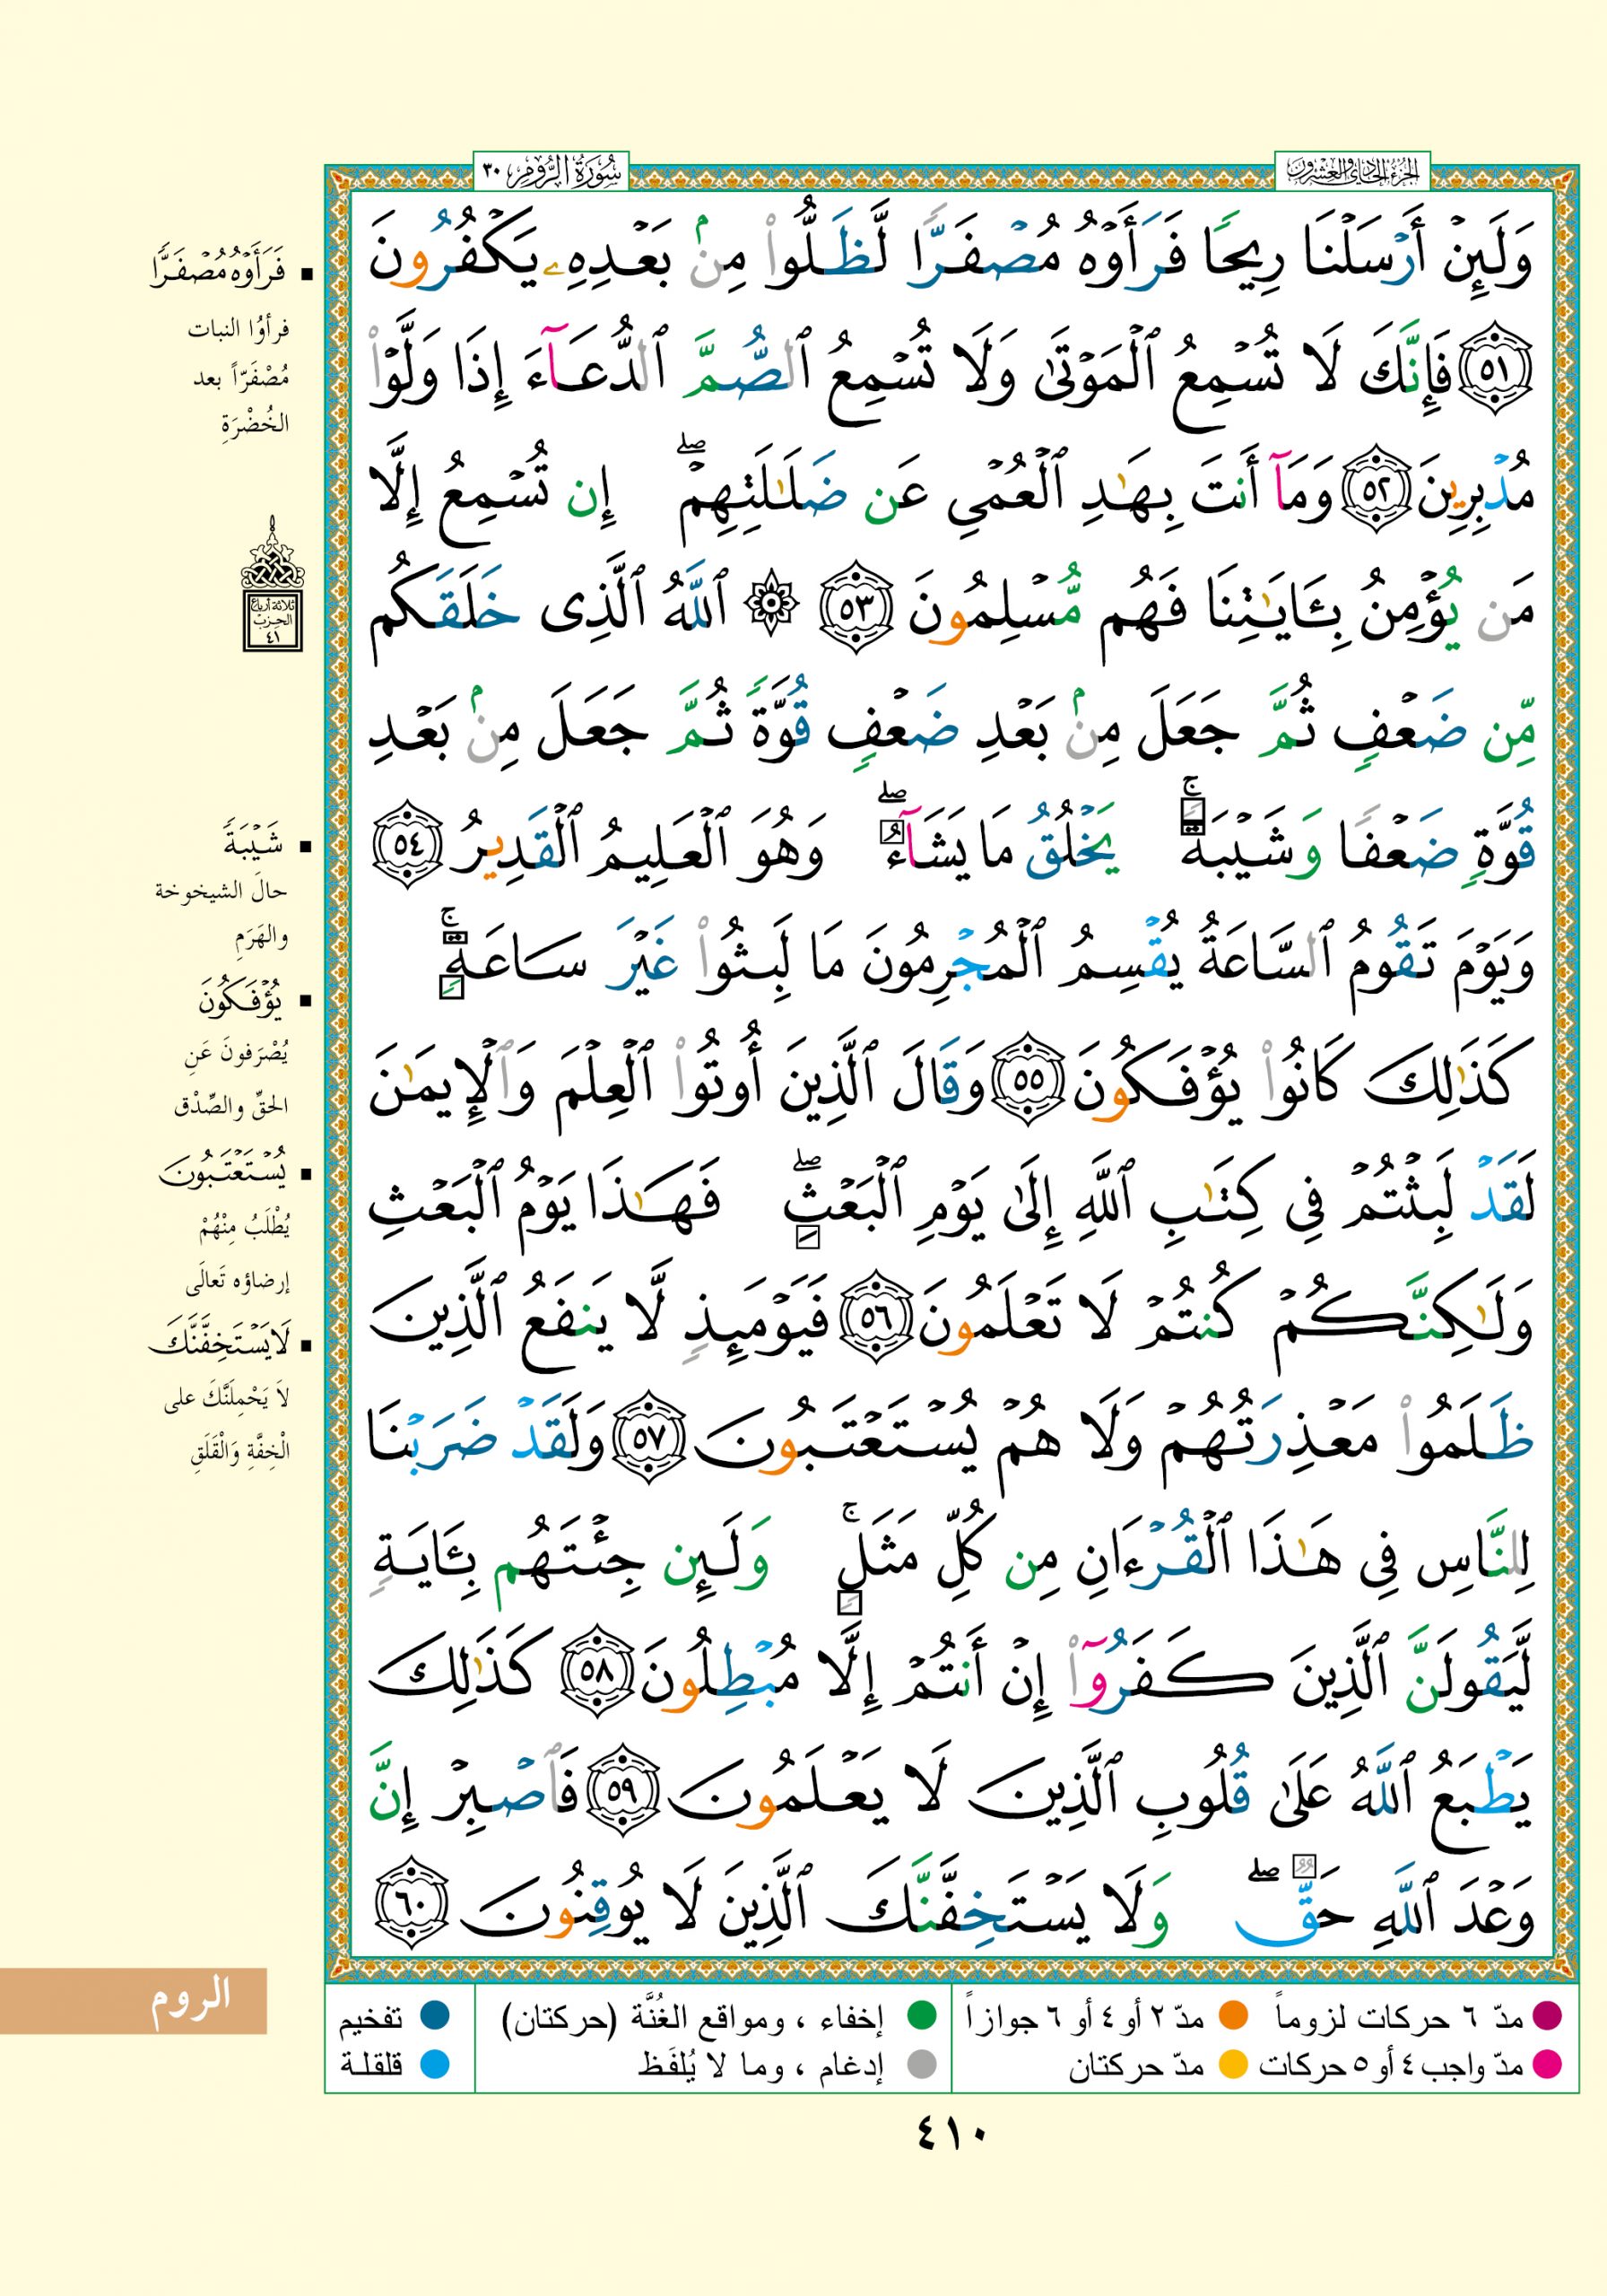 الجزء الحادي والعشرون
سُورَةُ الرُّومِ ٣٠
وَلَئِنْ أَرْسَلْنَا رِيحًا فَرَأَوْهُ مُصْفَرًّا لَّظَلُّوا۟ مِنۢ بَعْدِهِۦ يَكْفُرُونَ
٥١ فَإِنَّكَ لَا تُسْمِعُ ٱلْمَوْتَىٰ وَلَا تُسْمِعُ ٱلصُّمَّ ٱلدُّعَآءَ إِذَا وَلَّوْا۟
مُدْبِرِينَ ٥٢ وَمَآ أَنتَ بِهَٰدِ ٱلْعُمْىِ عَن ضَلَٰلَتِهِمْ ۖ إِن تُسْمِعُ إِلَّا
مَن يُؤْمِنُ بِـَٔايَٰتِنَا فَهُم مُّسْلِمُونَ ٥٣ ۞ ٱللَّهُ ٱلَّذِى خَلَقَكُم
مِّن ضَعْفٍ ثُمَّ جَعَلَ مِنۢ بَعْدِ ضَعْفٍ قُوَّةً ثُمَّ جَعَلَ مِنۢ بَعْدِ
قُوَّةٍ ضَعْفًا وَشَيْبَةً ۚ يَخْلُقُ مَا يَشَآءُ ۖ وَهُوَ ٱلْعَلِيمُ ٱلْقَدِيرُ ٥٤
وَيَوْمَ تَقُومُ ٱلسَّاعَةُ يُقْسِمُ ٱلْمُجْرِمُونَ مَا لَبِثُوا۟ غَيْرَ سَاعَةٍ ۚ
كَذَٰلِكَ كَانُوا۟ يُؤْفَكُونَ ٥٥ وَقَالَ ٱلَّذِينَ أُوتُوا۟ ٱلْعِلْمَ وَٱلْإِيمَٰنَ
لَقَدْ لَبِثْتُمْ فِى كِتَٰبِ ٱللَّهِ إِلَىٰ يَوْمِ ٱلْبَعْثِ ۖ فَهَٰذَا يَوْمُ ٱلْبَعْثِ
وَلَٰكِنَّكُمْ كُنتُمْ لَا تَعْلَمُونَ ٥٦ فَيَوْمَئِذٍ لَّا يَنفَعُ ٱلَّذِينَ
ظَلَمُوا۟ مَعْذِرَتُهُمْ وَلَا هُمْ يُسْتَعْتَبُونَ ٥٧ وَلَقَدْ ضَرَبْنَا
لِلنَّاسِ فِى هَٰذَا ٱلْقُرْءَانِ مِن كُلِّ مَثَلٍ ۚ وَلَئِن جِئْتَهُم بِـَٔايَةٍ
لَّيَقُولَنَّ ٱلَّذِينَ كَفَرُوٓا۟ إِنْ أَنتُمْ إِلَّا مُبْطِلُونَ ٥٨ كَذَٰلِكَ
يَطْبَعُ ٱللَّهُ عَلَىٰ قُلُوبِ ٱلَّذِينَ لَا يَعْلَمُونَ ٥٩ فَٱصْبِرْ إِنَّ
وَعْدَ ٱللَّهِ حَقٌّ ۖ وَلَا يَسْتَخِفَّنَّكَ ٱلَّذِينَ لَا يُوقِنُونَ ٦٠
▪ فَرَأَوْهُ مُصْفَرًّا
فرأوُا النبات
مُصْفَرّاً بعد
الخُضْرَةِ
ثلاثة أرباع
الحزب
٤١
▪ شَيْبَةً
حالَ الشيخوخة
والهَرَمِ
▪ يُؤْفَكُونَ
يُصْرَفونَ عَنِ
الحقِّ والصِّدْق
▪ يُسْتَعْتَبُونَ
يُطْلَبُ مِنْهُمْ
إرضاؤه تَعالَى
▪ لَا يَسْتَخِفَّنَّكَ
لاَ يَحْمِلَنَّكَ على
الْخِفَّةِ وَالْقَلَقِ
الروم
مدّ ٦ حركات لزوماً ● مدّ ٢ أو ٤ أو ٦ جوازاً
مدّ واجب ٤ أو ٥ حركات ● مدّ حركتان
إخفاء ، ومواقع الغُنَّة (حركتان)
إدغام ، وما لا يُلفَظ
تفخيم
قلقلة
٤١٠